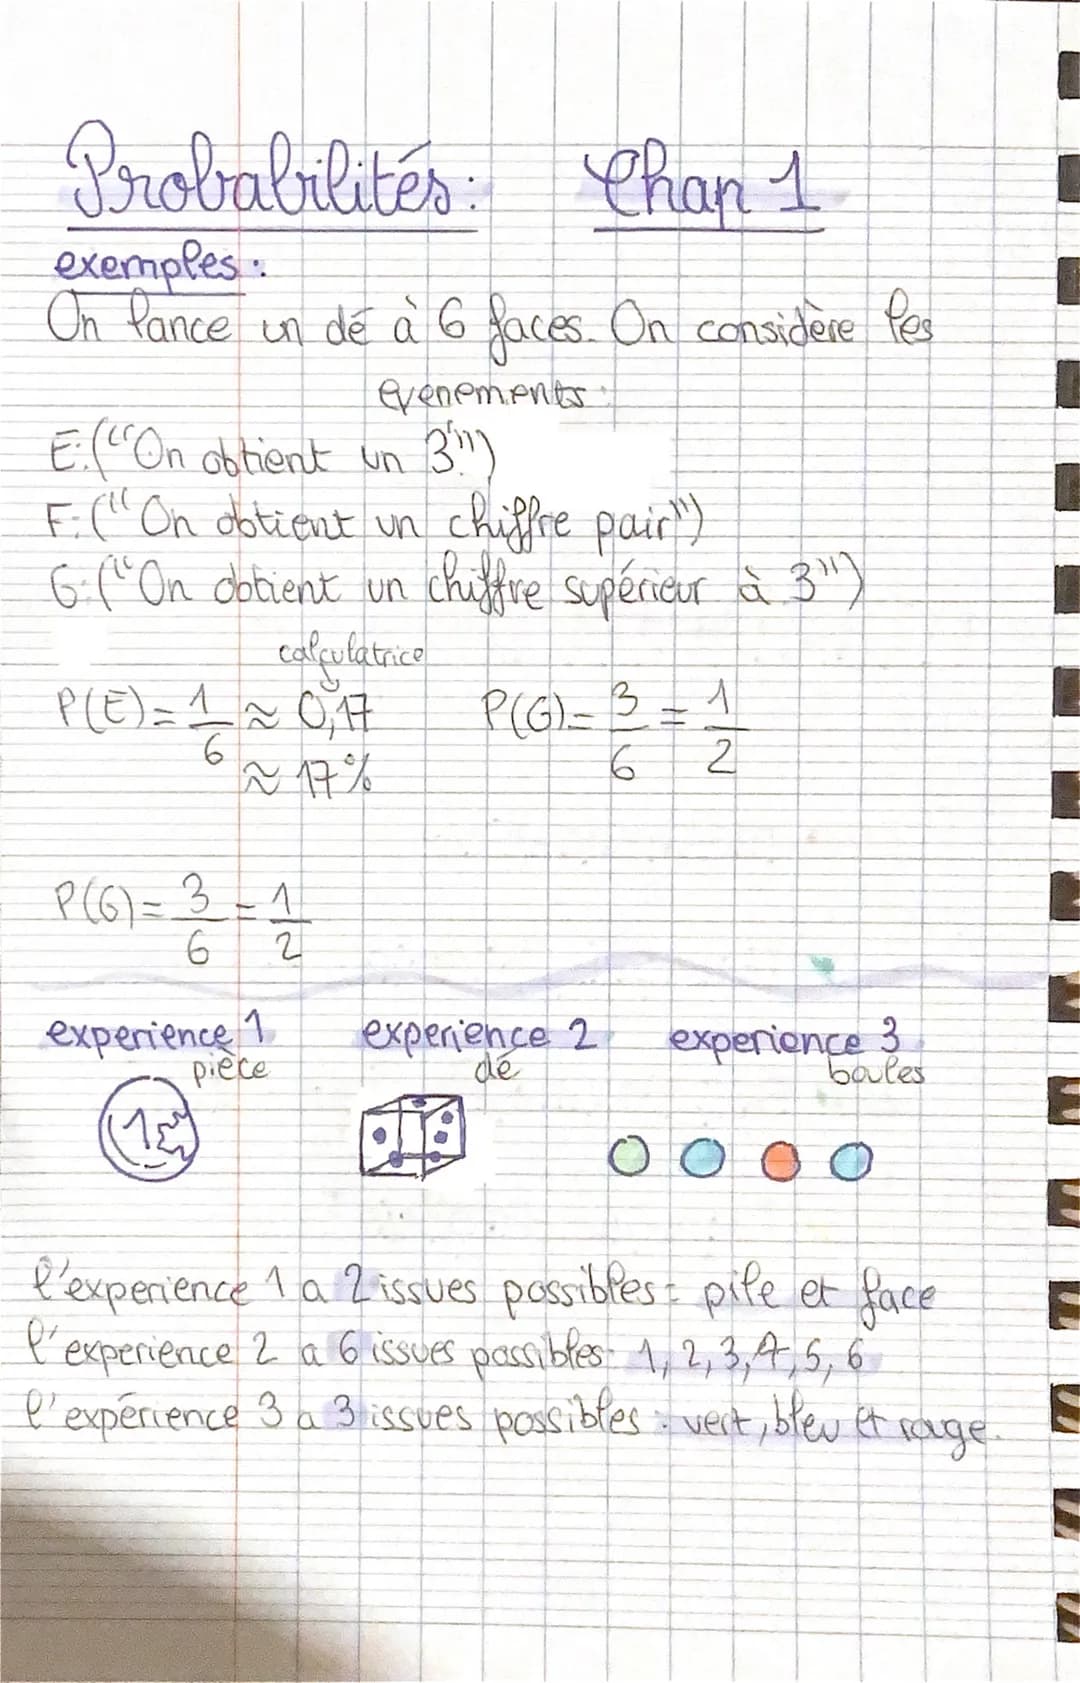 Probabilités: Chap 1
exemples:
On lance un dé à 6 faces. On considère les
evenements:
E:("On obtient un 3")
F:("On obtient un chiffre pair")
G:("On obtient un chiffre supérieur à 3")
calculatrice
P(E)= 1/6 ≈ 0,17 P(G)= 3/6 = 1/2
≈ 17%
P(G)= 3/6 = 1/2
experience 1 experience 2 experience 3
pièce dé boules
1€
l'experience 1 a 2 issues possibles: pile et face
l'experience 2 a 6 issues possibles: 1, 2, 3, 4, 5, 6
l'expérience 3 a 3 issues possibles: vert, bleu et rouge.